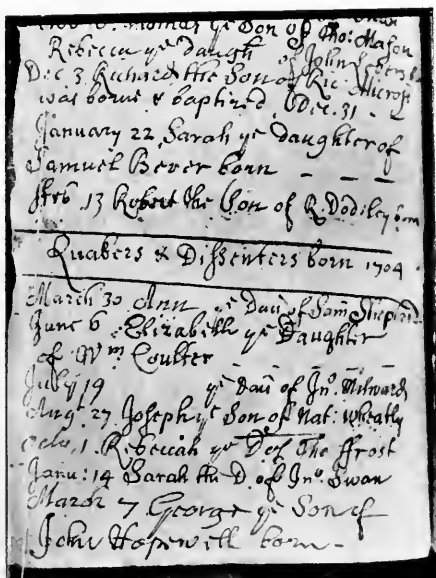 Thomas ye Son of Tho: Mason
Rebecca ye daugh of John
Dec 3 Richard the Son of Ric.
was borne & baptized Dec. 31
January 22 Sarah ye Daughter of
Samuel Bever born
Feb 13 Robert the Son of R. Dodsley born
Quakers & Dissenters born 1704
March 30 Ann ye Dau of Sam Shepird
June 6 Elizabeth ye Daughter
of Wm Coulter
July 19 ye Dau of Jno. Milward
Aug. 27 Joseph ye Son of Nat: Wheatly
Octo. 1. Rebeccah ye D of Tho ffrost
Janu: 14 Sarah the D. of Jno Swan
March 7 George ye Son of
John Hopewell born